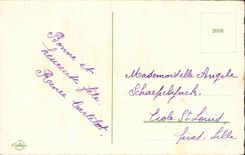 Bonne et
heureuse fête.
Renée
2008
Mademoiselle Angèle
Schaepelynck
Ecole St Louis
Lille